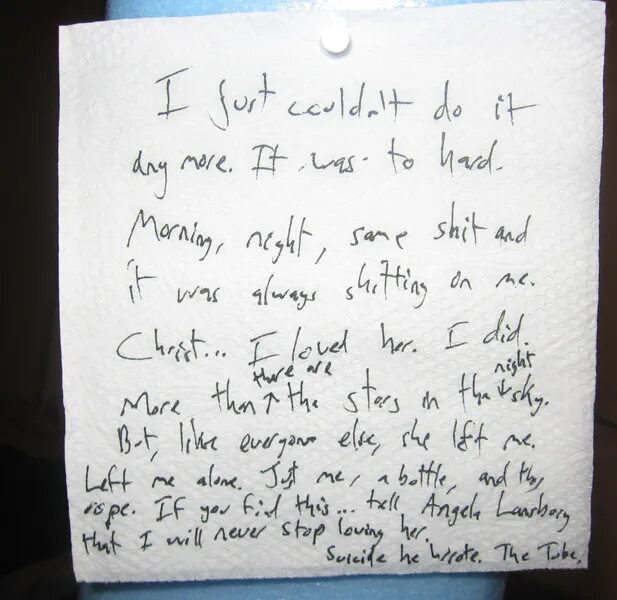 I just couldn't do it
any more. It was to hard.
Morning, night, same shit and
it was always shitting on me.
Christ... I loved her. I did.
there are night
More than ↑ the stars in the ↓ sky.
But, like everyone else, she left me.
Left me alone. Just me, a bottle, and this
rope. If you find this... tell Angela Lansbory
that I will never stop loving her.
Suicide he wrote. The Tube.